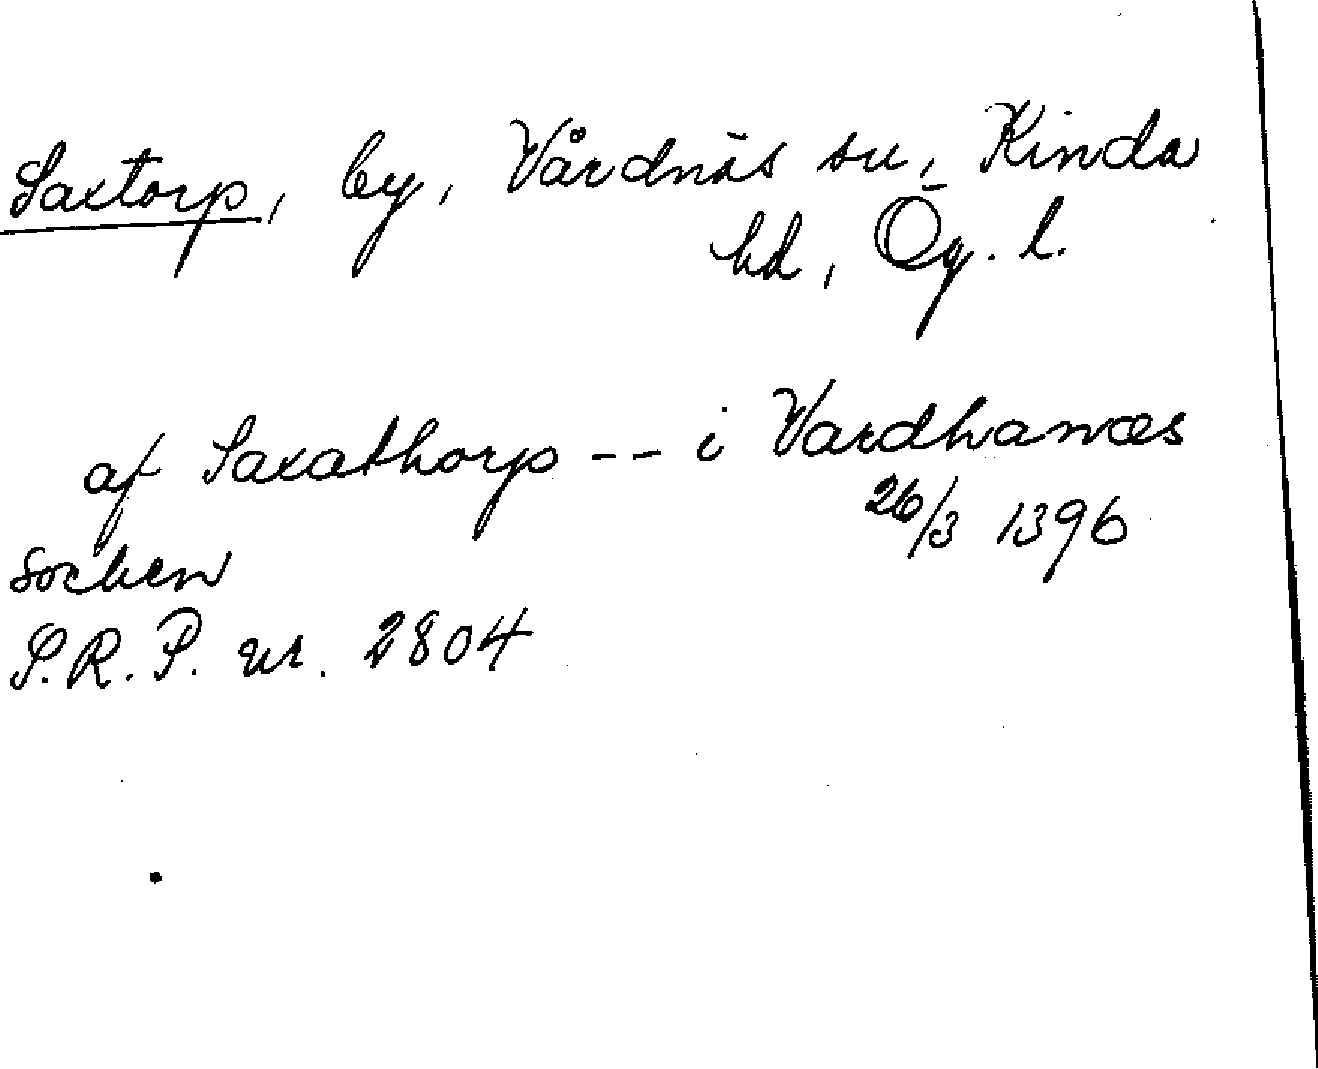 Saxtorp, by, Vårdnäs sn, Kinda
hd, Ög. l.
af Saxathorp -- i Vardhanæs
26/3 1396
socken
S.R.P. nr. 2804